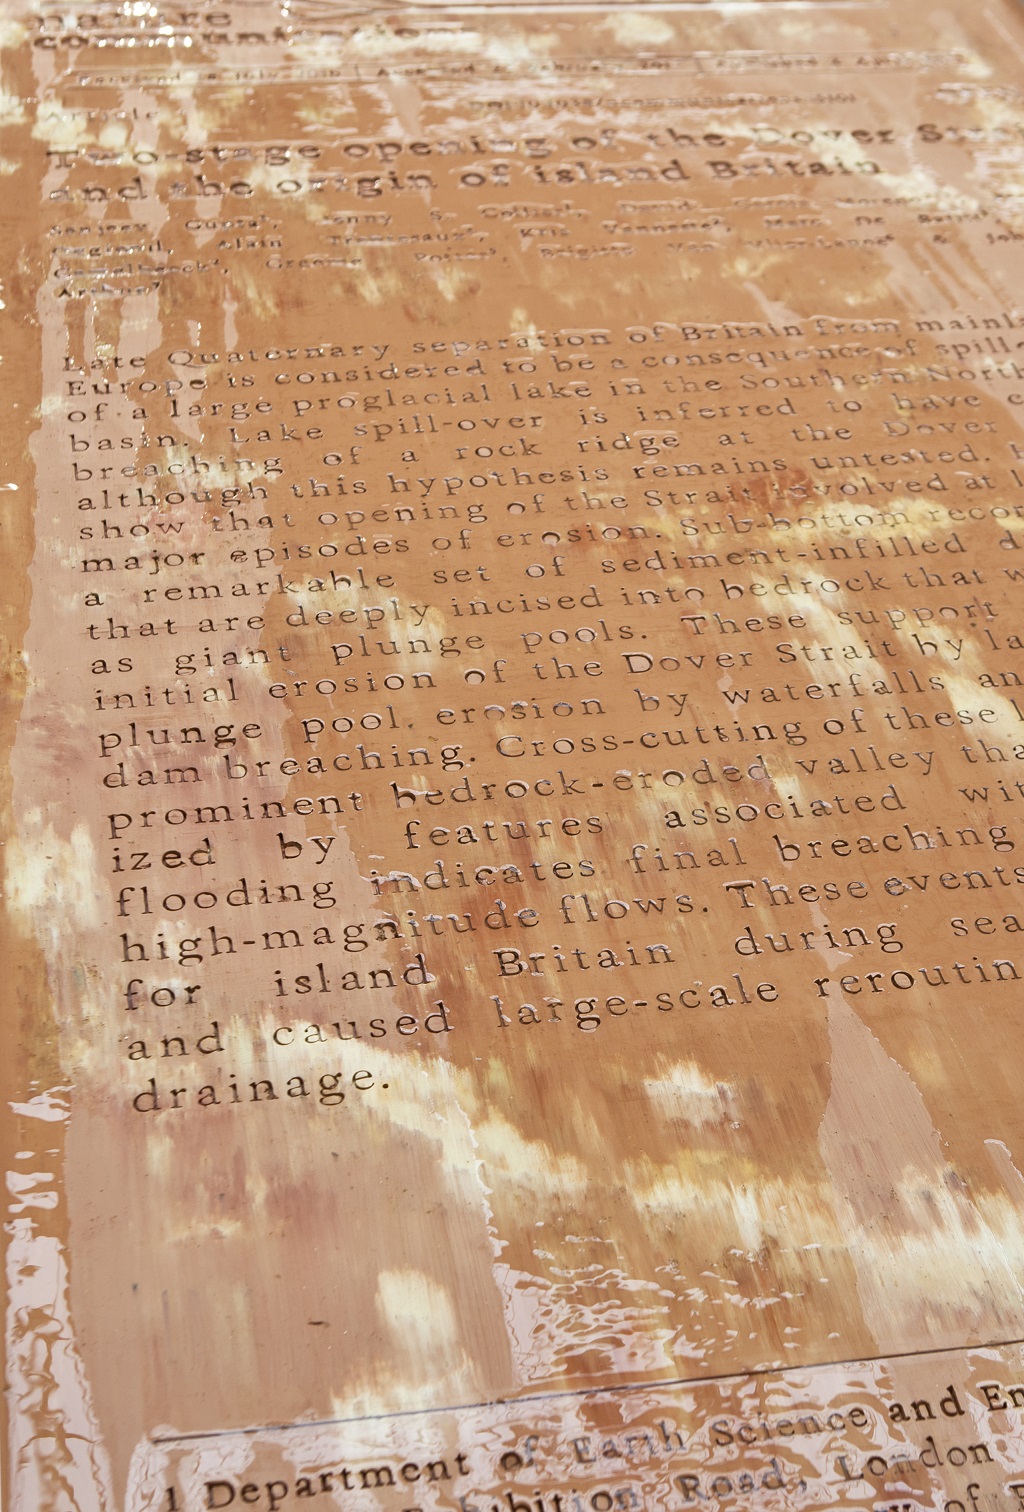 nature
communications
Article
Two-stage opening of the Dover Strai
and the origin of island Britain
Sanjeev Gupta¹, Jenny S. Collier¹, David
Alain Trentesaux⁴, Kris Vanneste⁵, Marc De Batist
Graeme Potter³, Brigitte Van Vliet-Lanoë⁶ & Joh
Arthur⁷
Late Quaternary separation of Britain from mainl
Europe is considered to be a consequence of spill-
of a large proglacial lake in the Southern North
basin. Lake spill-over is inferred to have c
breaching of a rock ridge at the Dover
although this hypothesis remains untested.
show that opening of the Strait involved at l
major episodes of erosion. Sub-bottom recor
a remarkable set of sediment-infilled d
that are deeply incised into bedrock that w
as giant plunge pools. These support
initial erosion of the Dover Strait by la
plunge pool, erosion by waterfalls an
dam breaching. Cross-cutting of these l
prominent bedrock-eroded valley tha
ized by features associated wit
flooding indicates final breaching
high-magnitude flows. These events
for island Britain during sea
and caused large-scale reroutin
drainage.
1 Department of Earth Science and En
Road, London
of